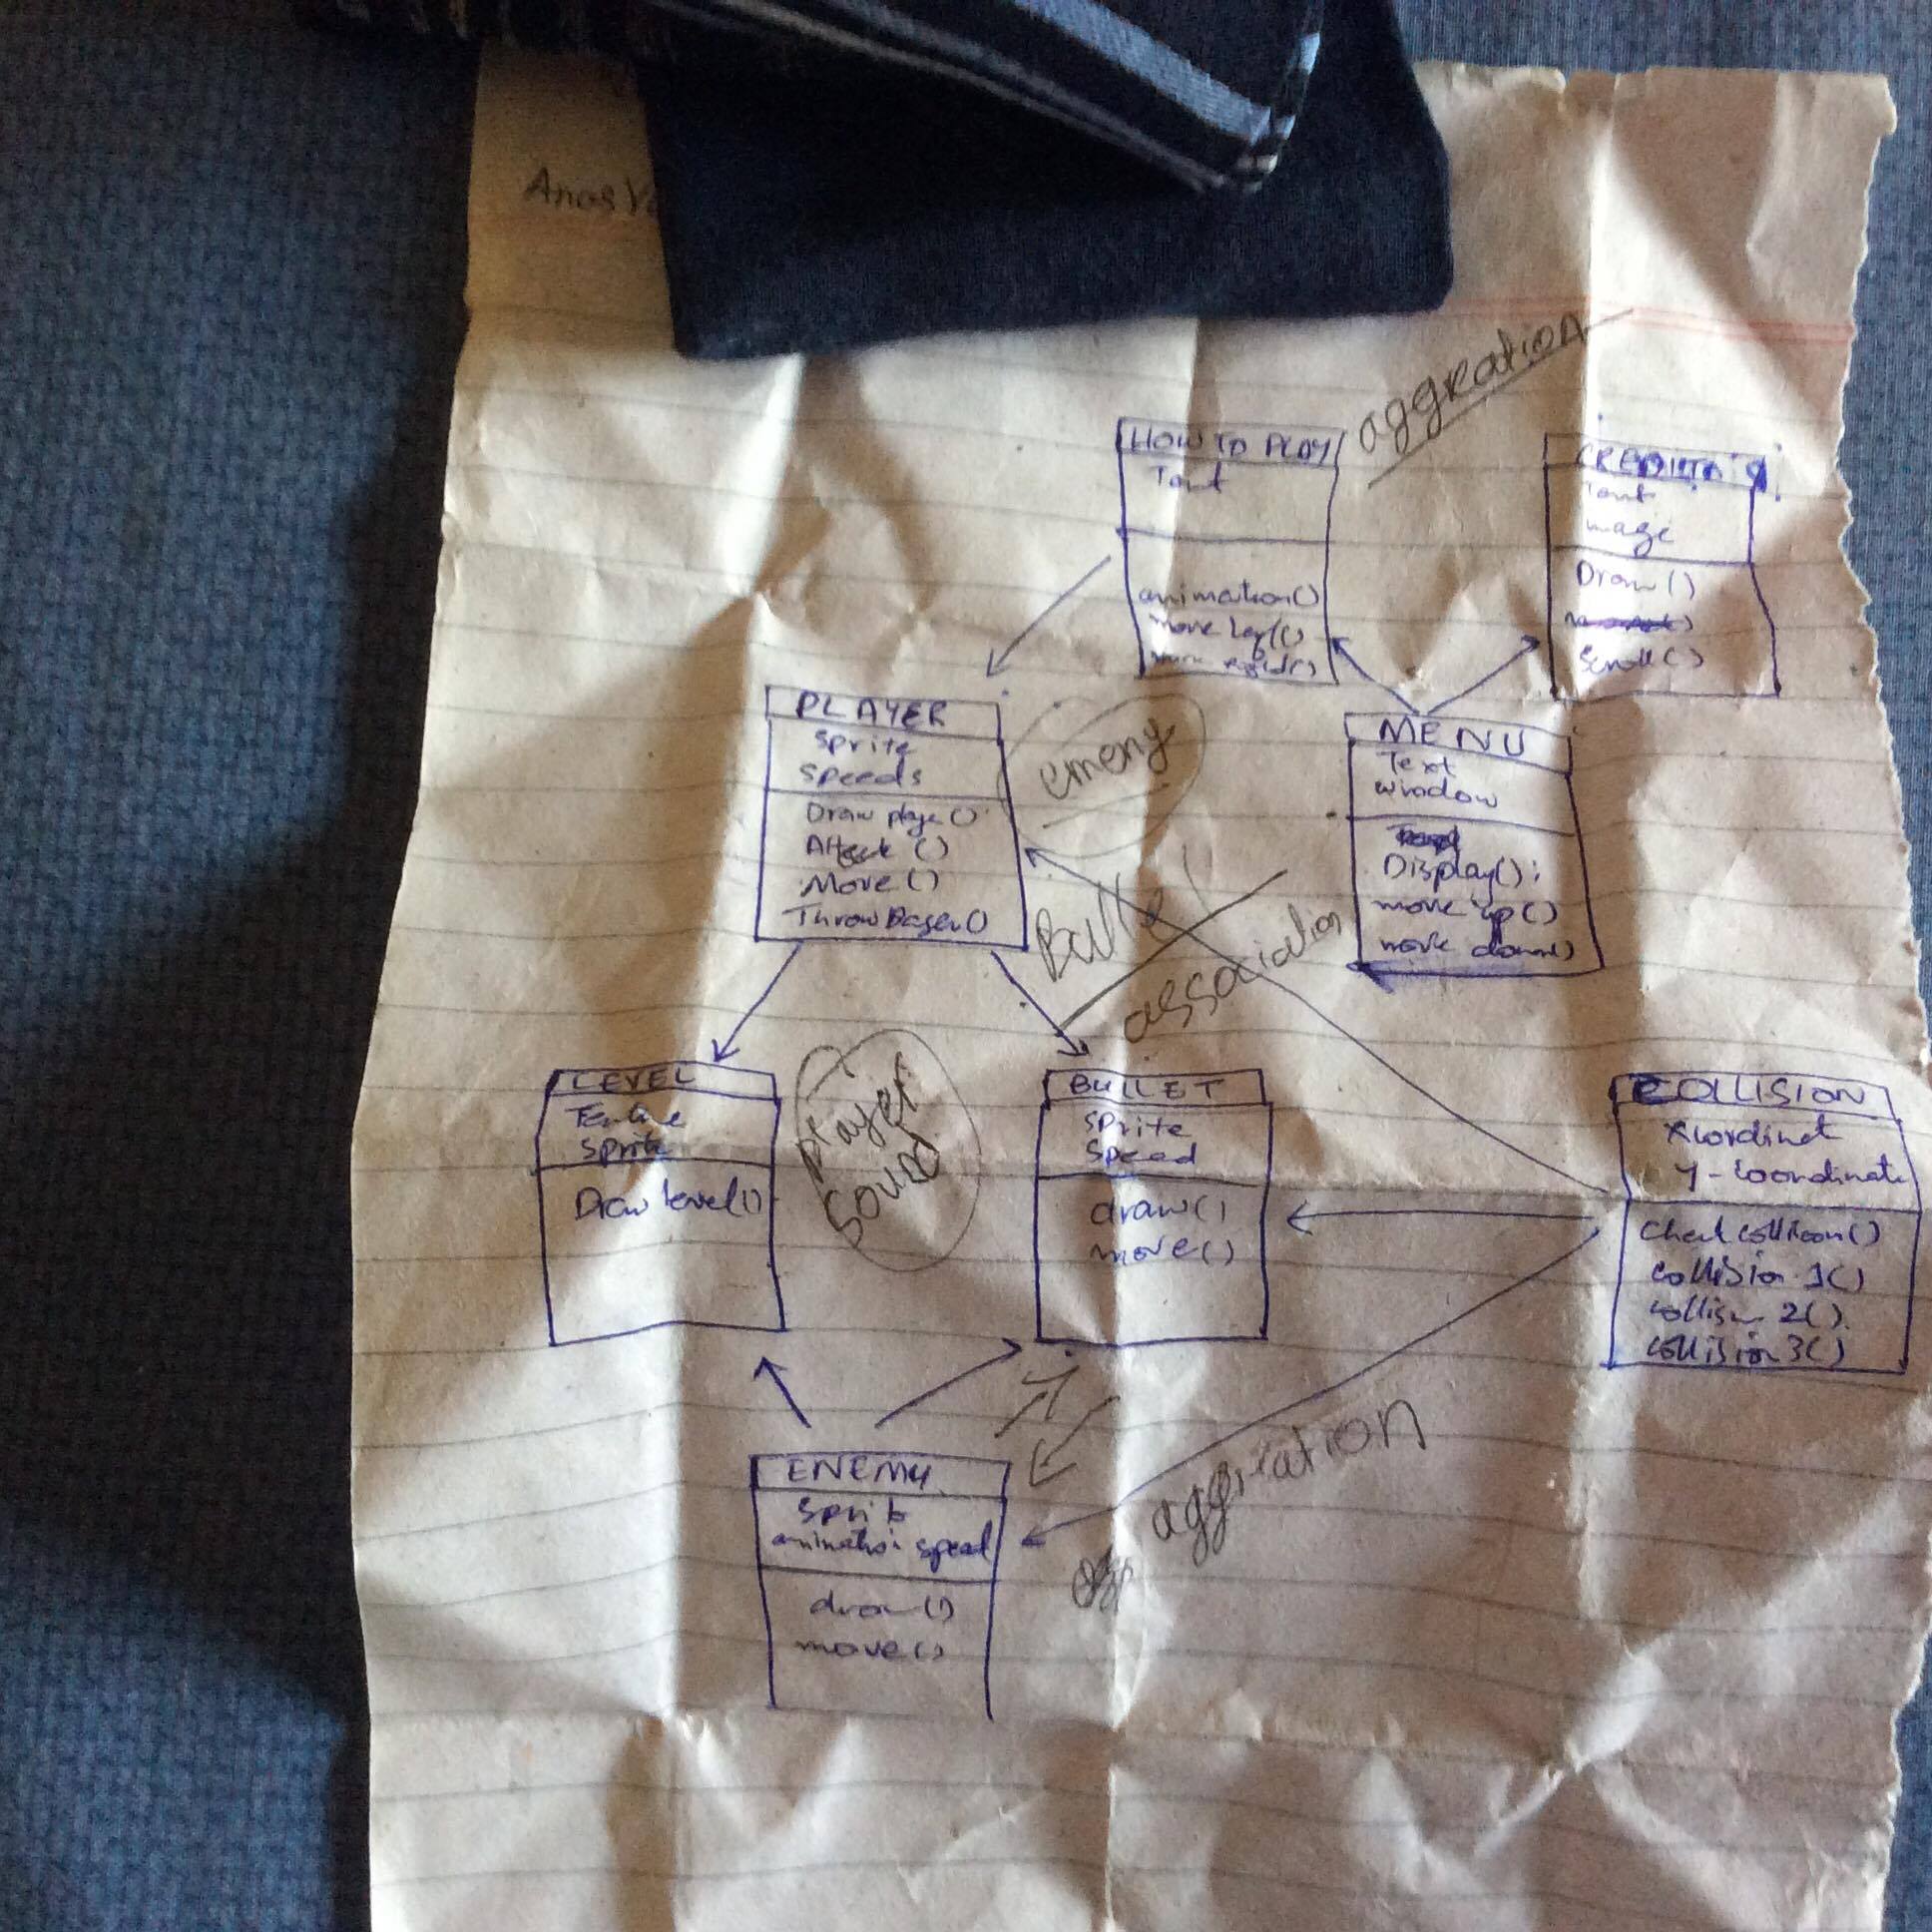 Anas
aggreation
HOW TO PLAY
Text
animation()
move left()
CREDITS
Text
image
Draw()
Scroll()
PLAYER
sprite
speeds
Draw player()
Attack ()
Move()
Throw Dager()
emeny
MENU
Text
window
Display();
move up()
move down()
Bullet
association
LEVEL
Sprite
Draw level()
player
sound
BULLET
sprite
speed
draw()
move()
COLLISION
y-coordinate
Check collision()
collision 1()
collision 2().
collision 3()
ENEMY
animation speed
draw()
move()
aggration